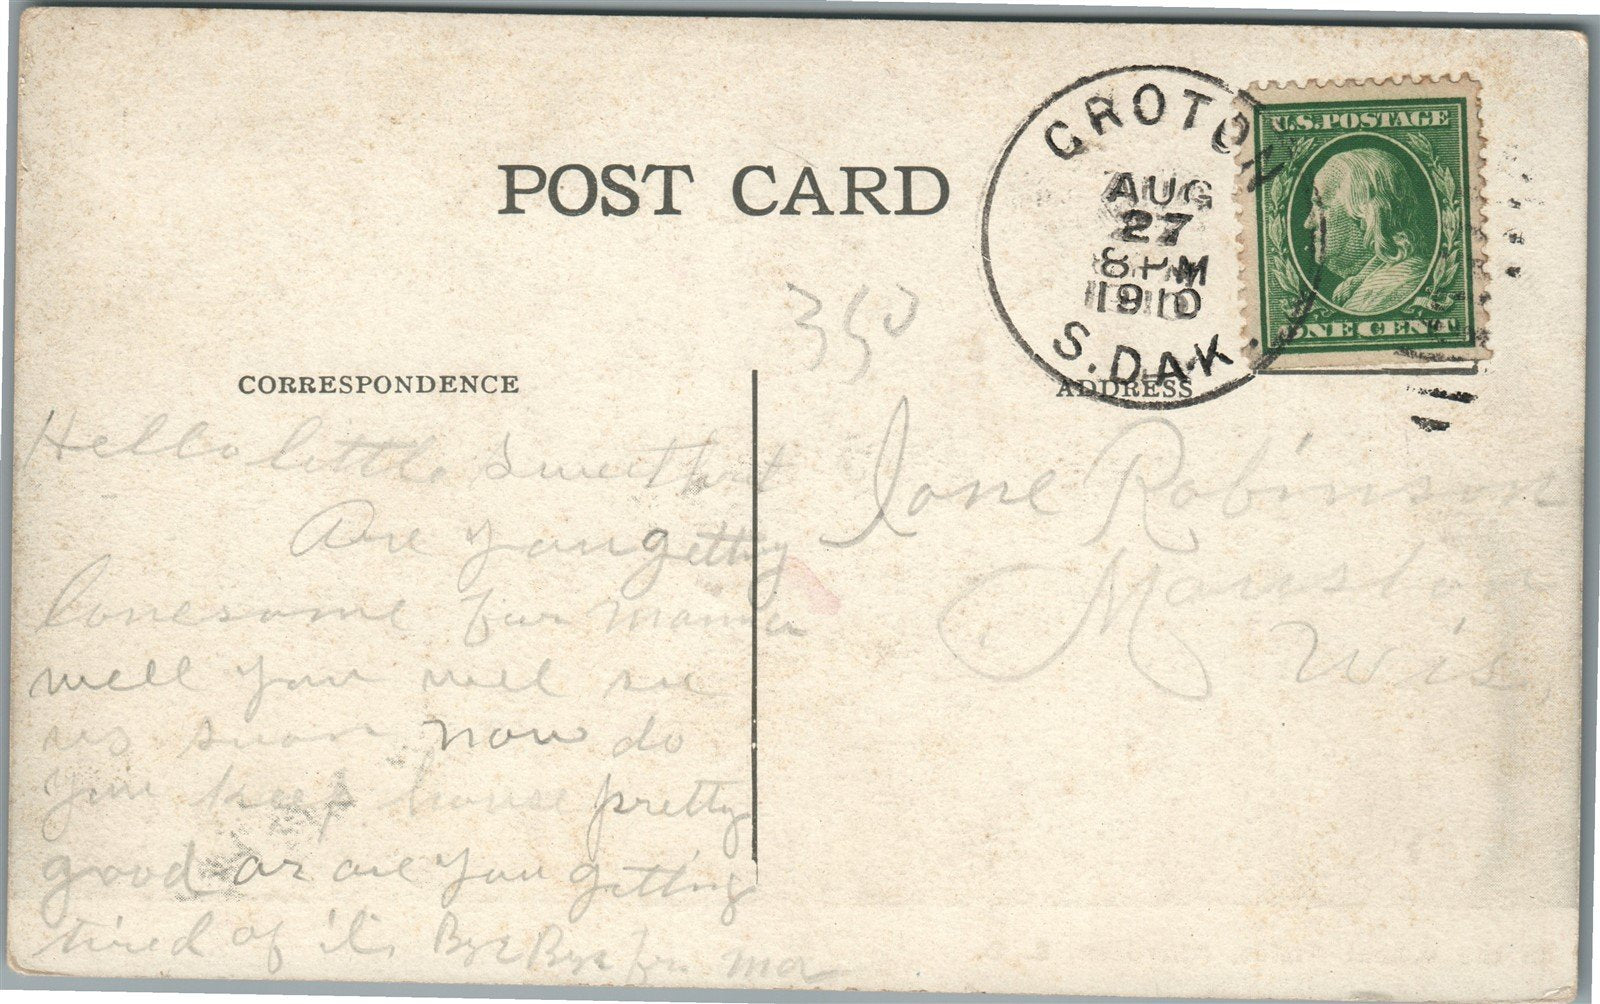 POST CARD
CROTON
AUG
27
8 PM
1910
S. DAK.
U.S. POSTAGE
ONE CENT
350
CORRESPONDENCE
ADDRESS
Hello little Sweethart
Are you getting
lonesome for mamma
well you will see
us suon now do
you keep house pretty
good or are you getting
tired of it Bye Bye for
Ione Robinson
Mauston
Wis.